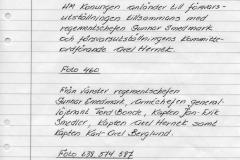 HM Konungen anländer till försvars-
utställningen tillsammans med
regementschefen Gunnar Smedmark
och försvarsutställningens Kommitté-
ordförande Axel Hernek.
Foto 460
Från vänster regementschefen
Gunnar Smedmark, Arméchefen general-
löjtnant Tord Bonde, Kapten Jan-Erik
Smedler, Kapten Axel Hernek samt
Kapten Karl-Axel Berglund.
Foto 638, 574, 587